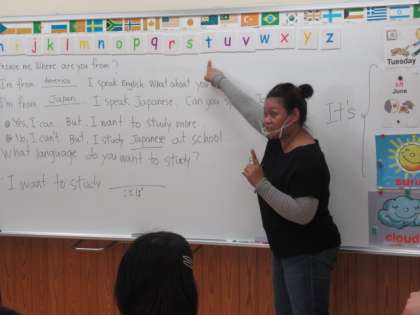 h i j k l m n o p q r s t u v w x y z
Excuse me. Where are you from?
I'm from America. I speak English. What about you
I'm from Japan. I speak Japanese. Can you s
Yes, I can. But, I want to study more
No, I can't. But, I study Japanese at school
What language do you want to study?
I want to study
It's
June
cloud